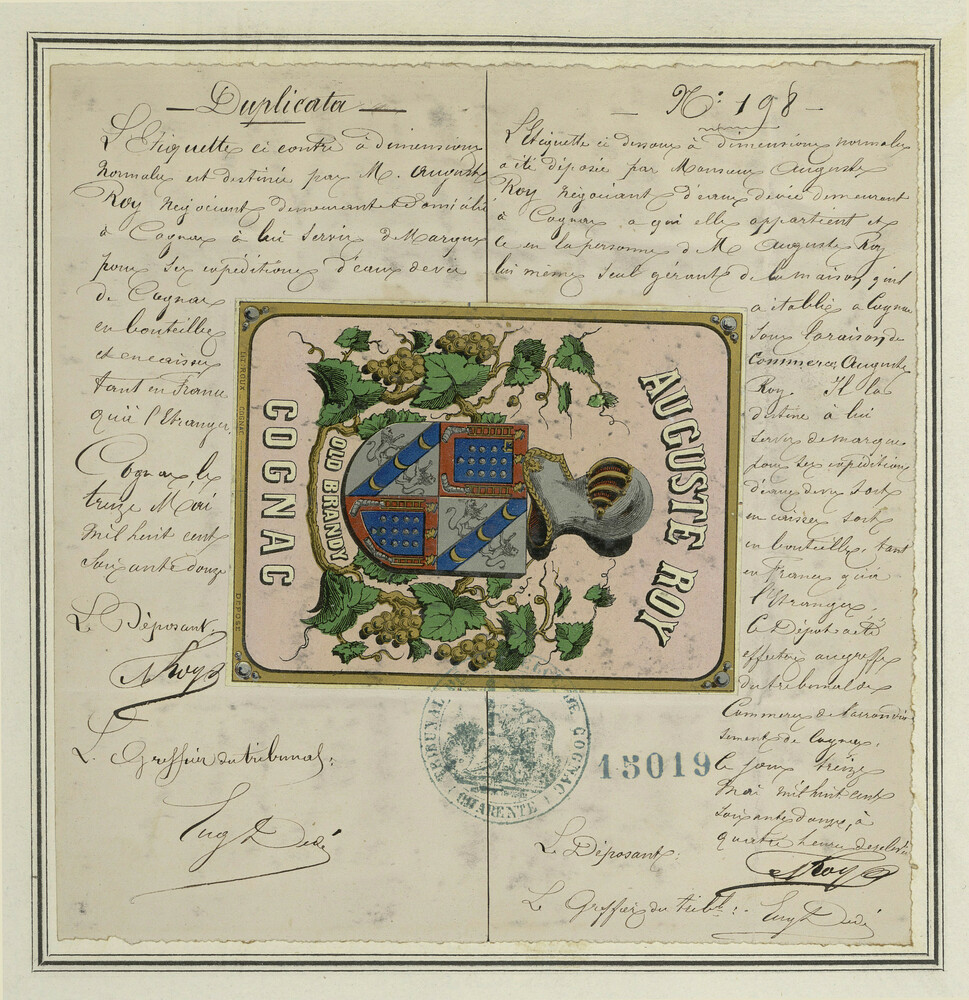 Duplicata
L'Etiquette ci contre à dimensions
normales est destinée par M. Auguste
Roy négociant demeurant et domicilié
à Cognac à lui servir de Marque
pour ses expéditions d'eaux de vie
de Cognac
en bouteilles
et en caisses
tant en France
qu'à l'Etranger.
Cognac, le
treize Mai
mil huit cent
soixante douze
Le Déposant,
ARoy
Le Greffier du tribunal,
Eug Dédé
N° 198
L'Etiquette ci dessous à dimensions normales
a été déposée par Monsieur Auguste
Roy négociant d'eaux de vie demeurant
à Cognac à qui elle appartient et
ce en la personne de M Auguste Roy
lui même seul gérant de la maison qu'il
a établie à Cognac
sous la raison de
Commerce Auguste
Roy. Il la
destine à lui
servir de marque
pour ses expéditions
d'eaux de vie soit
en caisses soit
en bouteilles, tant
en France qu'à
l'Etranger.
Ce Dépôt a été
effectué au greffe
du tribunal de
Commerce de l'arrondis
sement de Cognac,
le jour treize
Mai mil huit cent
soixante douze, à
quatre heures de relevée
Le Déposant,
ARoy
Le Greffier du tribal:
Eug Dédé
AUGUSTE ROY
OLD BRANDY
COGNAC
LIT. ROUX COGNAC
DEPOSÉ
TRIBUNAL DE COGNAC
(CHARENTE)
15019